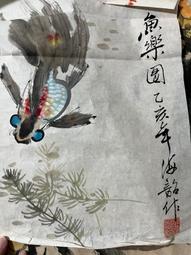 魚樂圖
乙亥年海韶作